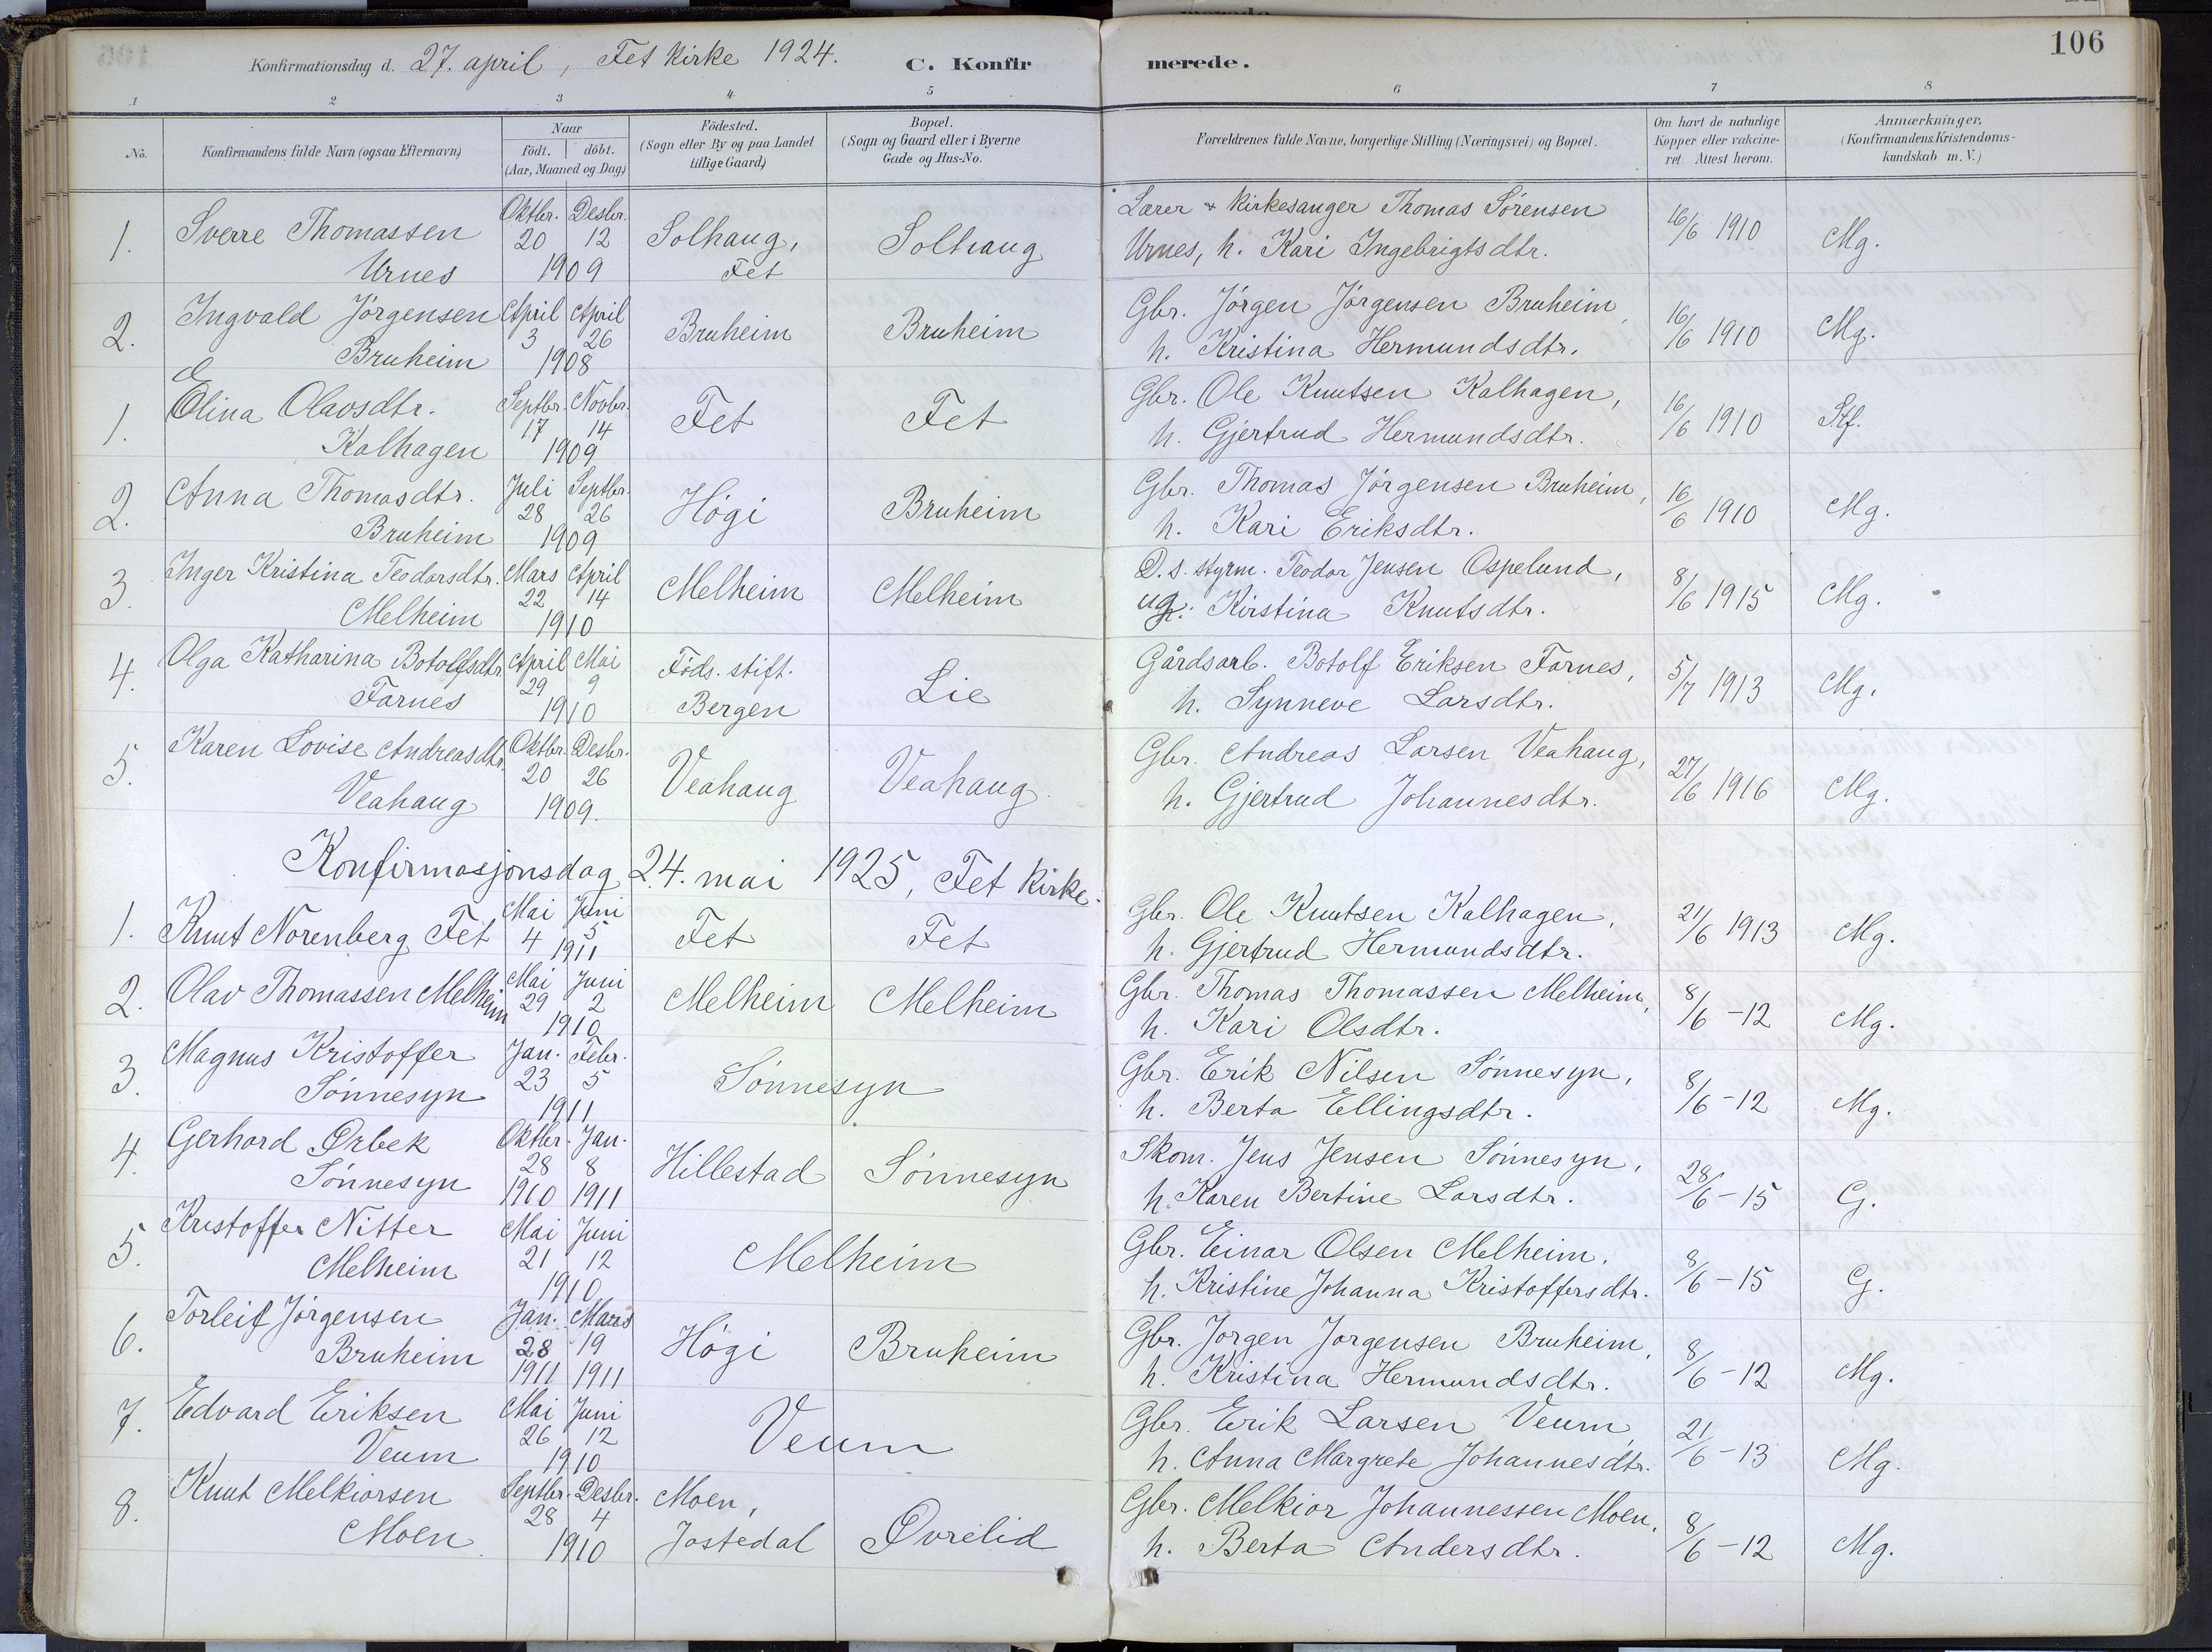 106
Konfirmationsdag d. 27. april, Fet kirke 1924. C. Konfirmerede.
1 2 3 4 5 6 7 8
No. Konfirmandens fulde Navn (ogsaa Efternavn) Naar Födt. döbt. (Aar, Maaned og Dag) Födested. (Sogn eller By og paa Landet tillige Gaard) Bopæl. (Sogn og Gaard eller i Byerne Gade og Hus-No. Forældrenes fulde Navne, borgerlige Stilling (Næringsvei) og Bopæl. Om havt de naturlige Kopper eller vakcineret. Attest herom. Anmærkninger, (Konfirmandens Kristendomskundskab m. V.)
1. Sverre Thomassen Oktbr. Desbr. Solhaug, Solhaug Lærer & kirkesanger Thomas Sørensen 16/6 1910 Mg.
Urnes 20 12 1909 Fet Urnes, h. Kari Ingebrigtsdtr.
2. Ingvald Jørgensen April April Bruheim Bruheim Gbr. Jörgen Jörgensen Bruheim, 16/6 1910 Mg.
Bruheim 3 26 1908 h. Kristina Hermundsdtr.
1. Olina Olavsdtr. Septbr. Novbr. Fet Fet Gbr. Ole Knutsen Kalhagen, 16/6 1910 Stf.
Kalhagen 17 14 1909 h. Gjertrud Hermundsdtr.
2. Anna Thomasdtr. Juli Septbr. Högi Bruheim Gbr. Thomas Jörgensen Bruheim, 16/6 1910 Mg.
Bruheim 28 26 1909 h. Kari Eriksdtr.
3. Inger Kristina Teodorsdtr. Mars April Melheim Melheim D. s. styrm. Teodor Jensen Ospelund, 8/6 1915 Mg.
Melheim 22 14 1910 ug. Kirstina Knutsdtr.
4. Olga Katharina Botolfsdtr. April Mai Föds. stift. Lie Gårdsarb. Botolf Eriksen Farnes, 5/7 1913 Mg.
Farnes 29 9 1910 Bergen h. Synneve Larsdtr.
5. Karen Lovise Andreasdtr. Oktbr. Desbr. Veahaug Veahaug Gbr. Andreas Larsen Veahaug, 27/6 1916 Mg.
Veahaug 20 26 1909. h. Gjertrud Johannesdtr.
Konfirmasjonsdag 24. mai 1925, Fet kirke.
1. Knut Norenberg Fet Mai Juni Fet Fet Gbr. Ole Knutsen Kalhagen, 21/6 1913 Mg.
4 5 1911 h. Gjertrud Hermundsdtr.
2. Olav Thomassen Melheim Mai Juni Melheim Melheim Gbr. Thomas Thomassen Melheim, 8/6 - 12 Mg.
29 2 1910 h. Kari Olsdtr.
3. Magnus Kristoffer Jan. Febr. Sönnesyn Gbr. Erik Nilsen Sönnesyn, 8/6 - 12 Mg.
Sönnesyn 23 5 1911 h. Berta Ellingsdtr.
4. Gerhard Ørbek Oktbr. Jan. Hillestad Sönnesyn Skom. Jens Jensen Sönnesyn, 28/6 - 15 G.
Sönnesyn 28 8 1910 1911 h. Karen Bertine Larsdtr.
5. Kristoffer Nitter Mai Juni Melheim Gbr. Einar Olsen Melheim, 8/6 - 15 G.
Melheim 21 12 1910 h. Kristine Johanna Kristoffersdtr.
6. Torleif Jörgensen Jan. Mars Högi Bruheim Gbr. Jorgen Jorgensen Bruheim, 8/6 - 12 Mg.
Bruheim 28 19 1911 1911 h. Kristina Hermundsdtr.
7. Edvard Eriksen Mai Juni Veum Gbr. Erik Larsen Veum, 21/6 - 13 Mg.
Veum 26 12 1910 h. Anna Margrete Johannesdtr.
8. Knut Melkiorsen Septbr. Desbr. Moen, Øvrelid Gbr. Melkior Johannessen Moen, 8/6 - 12 Mg.
Moen 28 4 1910 Jostedal h. Berta Andersdtr.